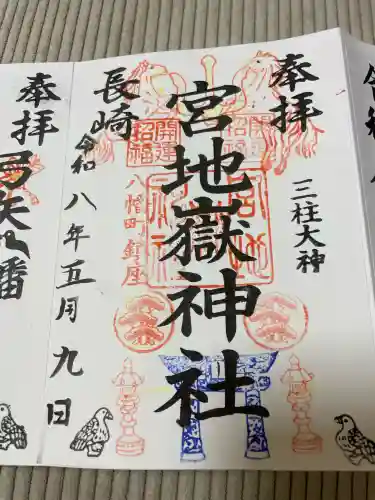 奉拝
三柱大神
宮地嶽神社
開運
招福
開運
招福
八幡町鎮座
長崎
令和八年五月九日
奉拝